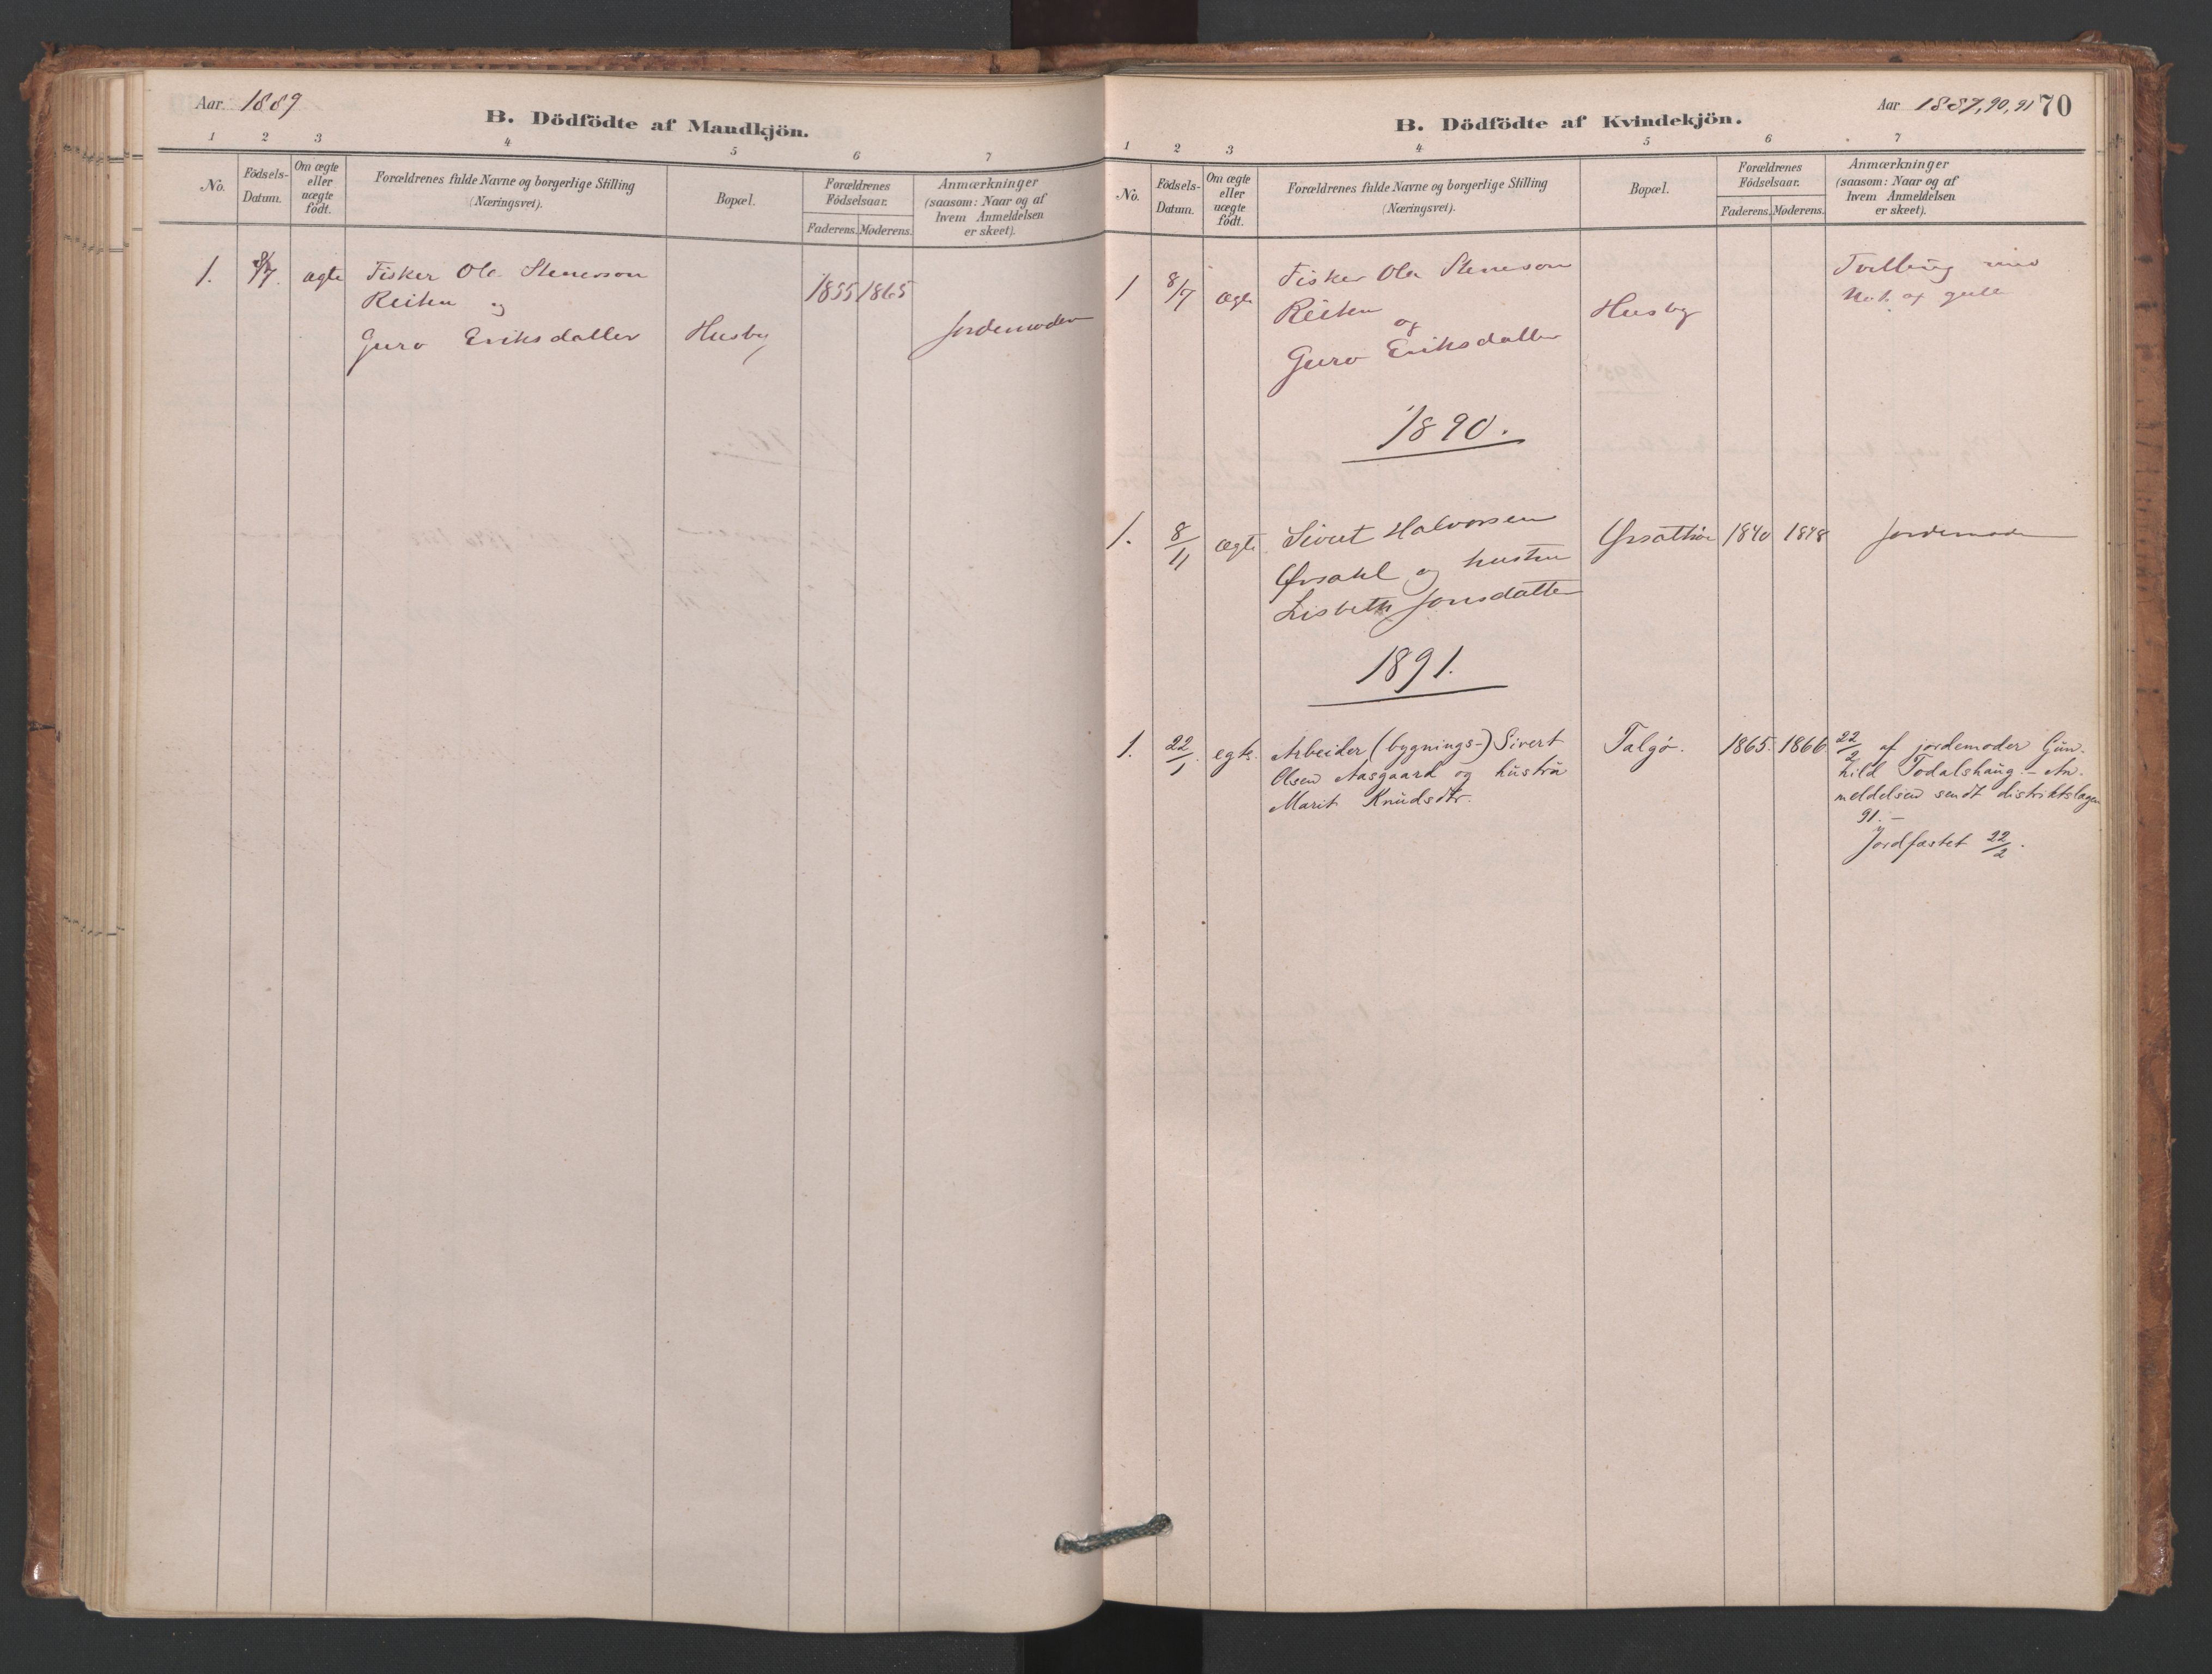 Aar 1889
B. Dödfödte af Mandkjön.
1 2 3 4 5 6 7
No. Födsels-Datum. Om ægte eller uægte födt. Forældrenes fulde Navne og borgerlige Stilling (Næringsvei). Bopæl. Forældrenes Födselsaar. Faderens. Moderens. Anmærkninger (saasom: Naar og af hvem Anmeldelsen er skeet).
1. 8/7. ægte Fisker Ola Stenerson
Reiten og 1855 1865
Guro Eriksdatter Husby Jordemoder
Aar 1887, 90, 91 70
B. Dödfödte af Kvindekjön.
1 2 3 4 5 6 7
No. Födsels-Datum. Om ægte eller uægte födt. Forældrenes fulde Navne og borgerlige Stilling (Næringsvei). Bopæl. Forældrenes Födselsaar. Faderens. Moderens. Anmærkninger (saasom: Naar og af hvem Anmeldelsen er skeet).
1 8/7 ægte Fisker Ola Stenerson Tvilling med
Reiten Husby No. 1 af gutte
og
Guro Eriksdatter
1890.
1. 8/11 ægte Sivert Halvorsen 1840 1848 Jordemoder
Ørsahl og hustru
Lisbeth Jonsdatter
1891.
1. 22/1. egte. Arbeider (bygnings-) Sivert Talgø. 1865. 1866. 22/2 af jordemoder Gun-
Olsen Aasgaard og hustru hild Todalshaug. – An-
Marit Knudsdtr. meldelsen sendt distriktslægen
91. –
Jordfæstet 22/2.